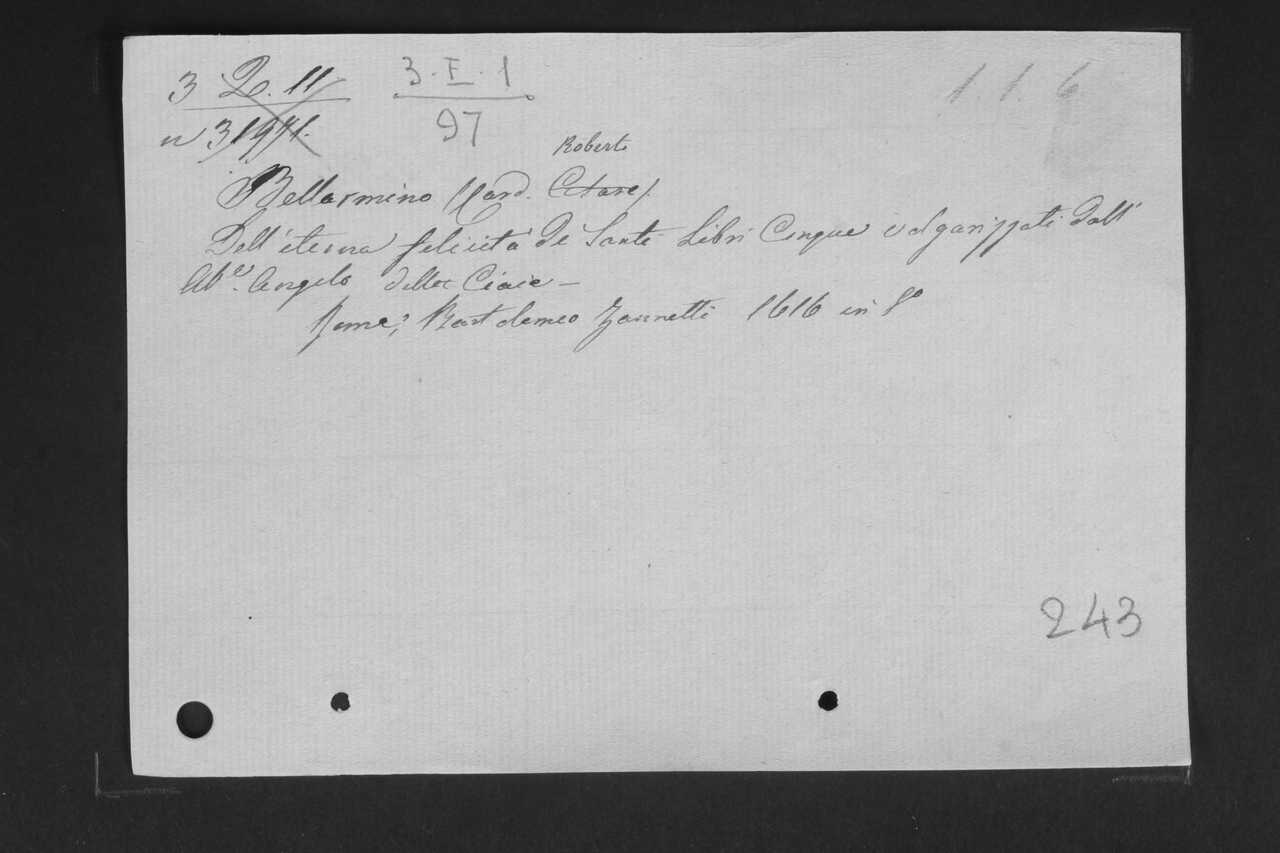 3 Q. 11
n 3191.
3.I.1
97
1. 1. 6
Roberto
Bellarmino (Card. Cesare).
Dell'eterna felicità de' Santi Libri Cinque volgarizzati dall'
Ab.e Angelo della Ciaie –
Roma, Bartolomeo Zannetti 1616 in 8°
243